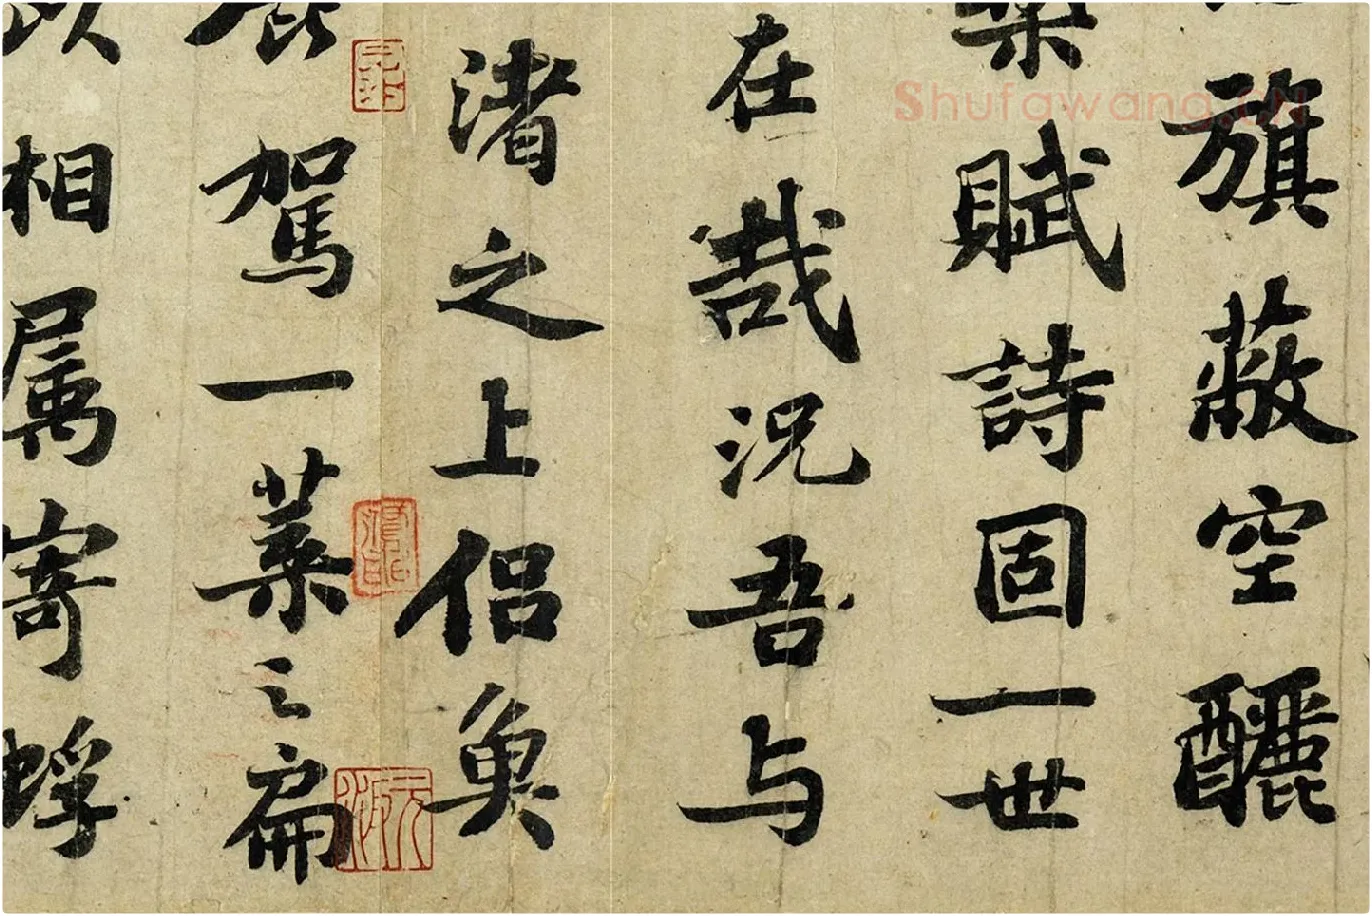 旗蔽空釃
槊賦詩固一世
在哉況吾与
渚之上侣魚
鹿駕一葉之扁
以相属寄蜉
Shufawang.CN